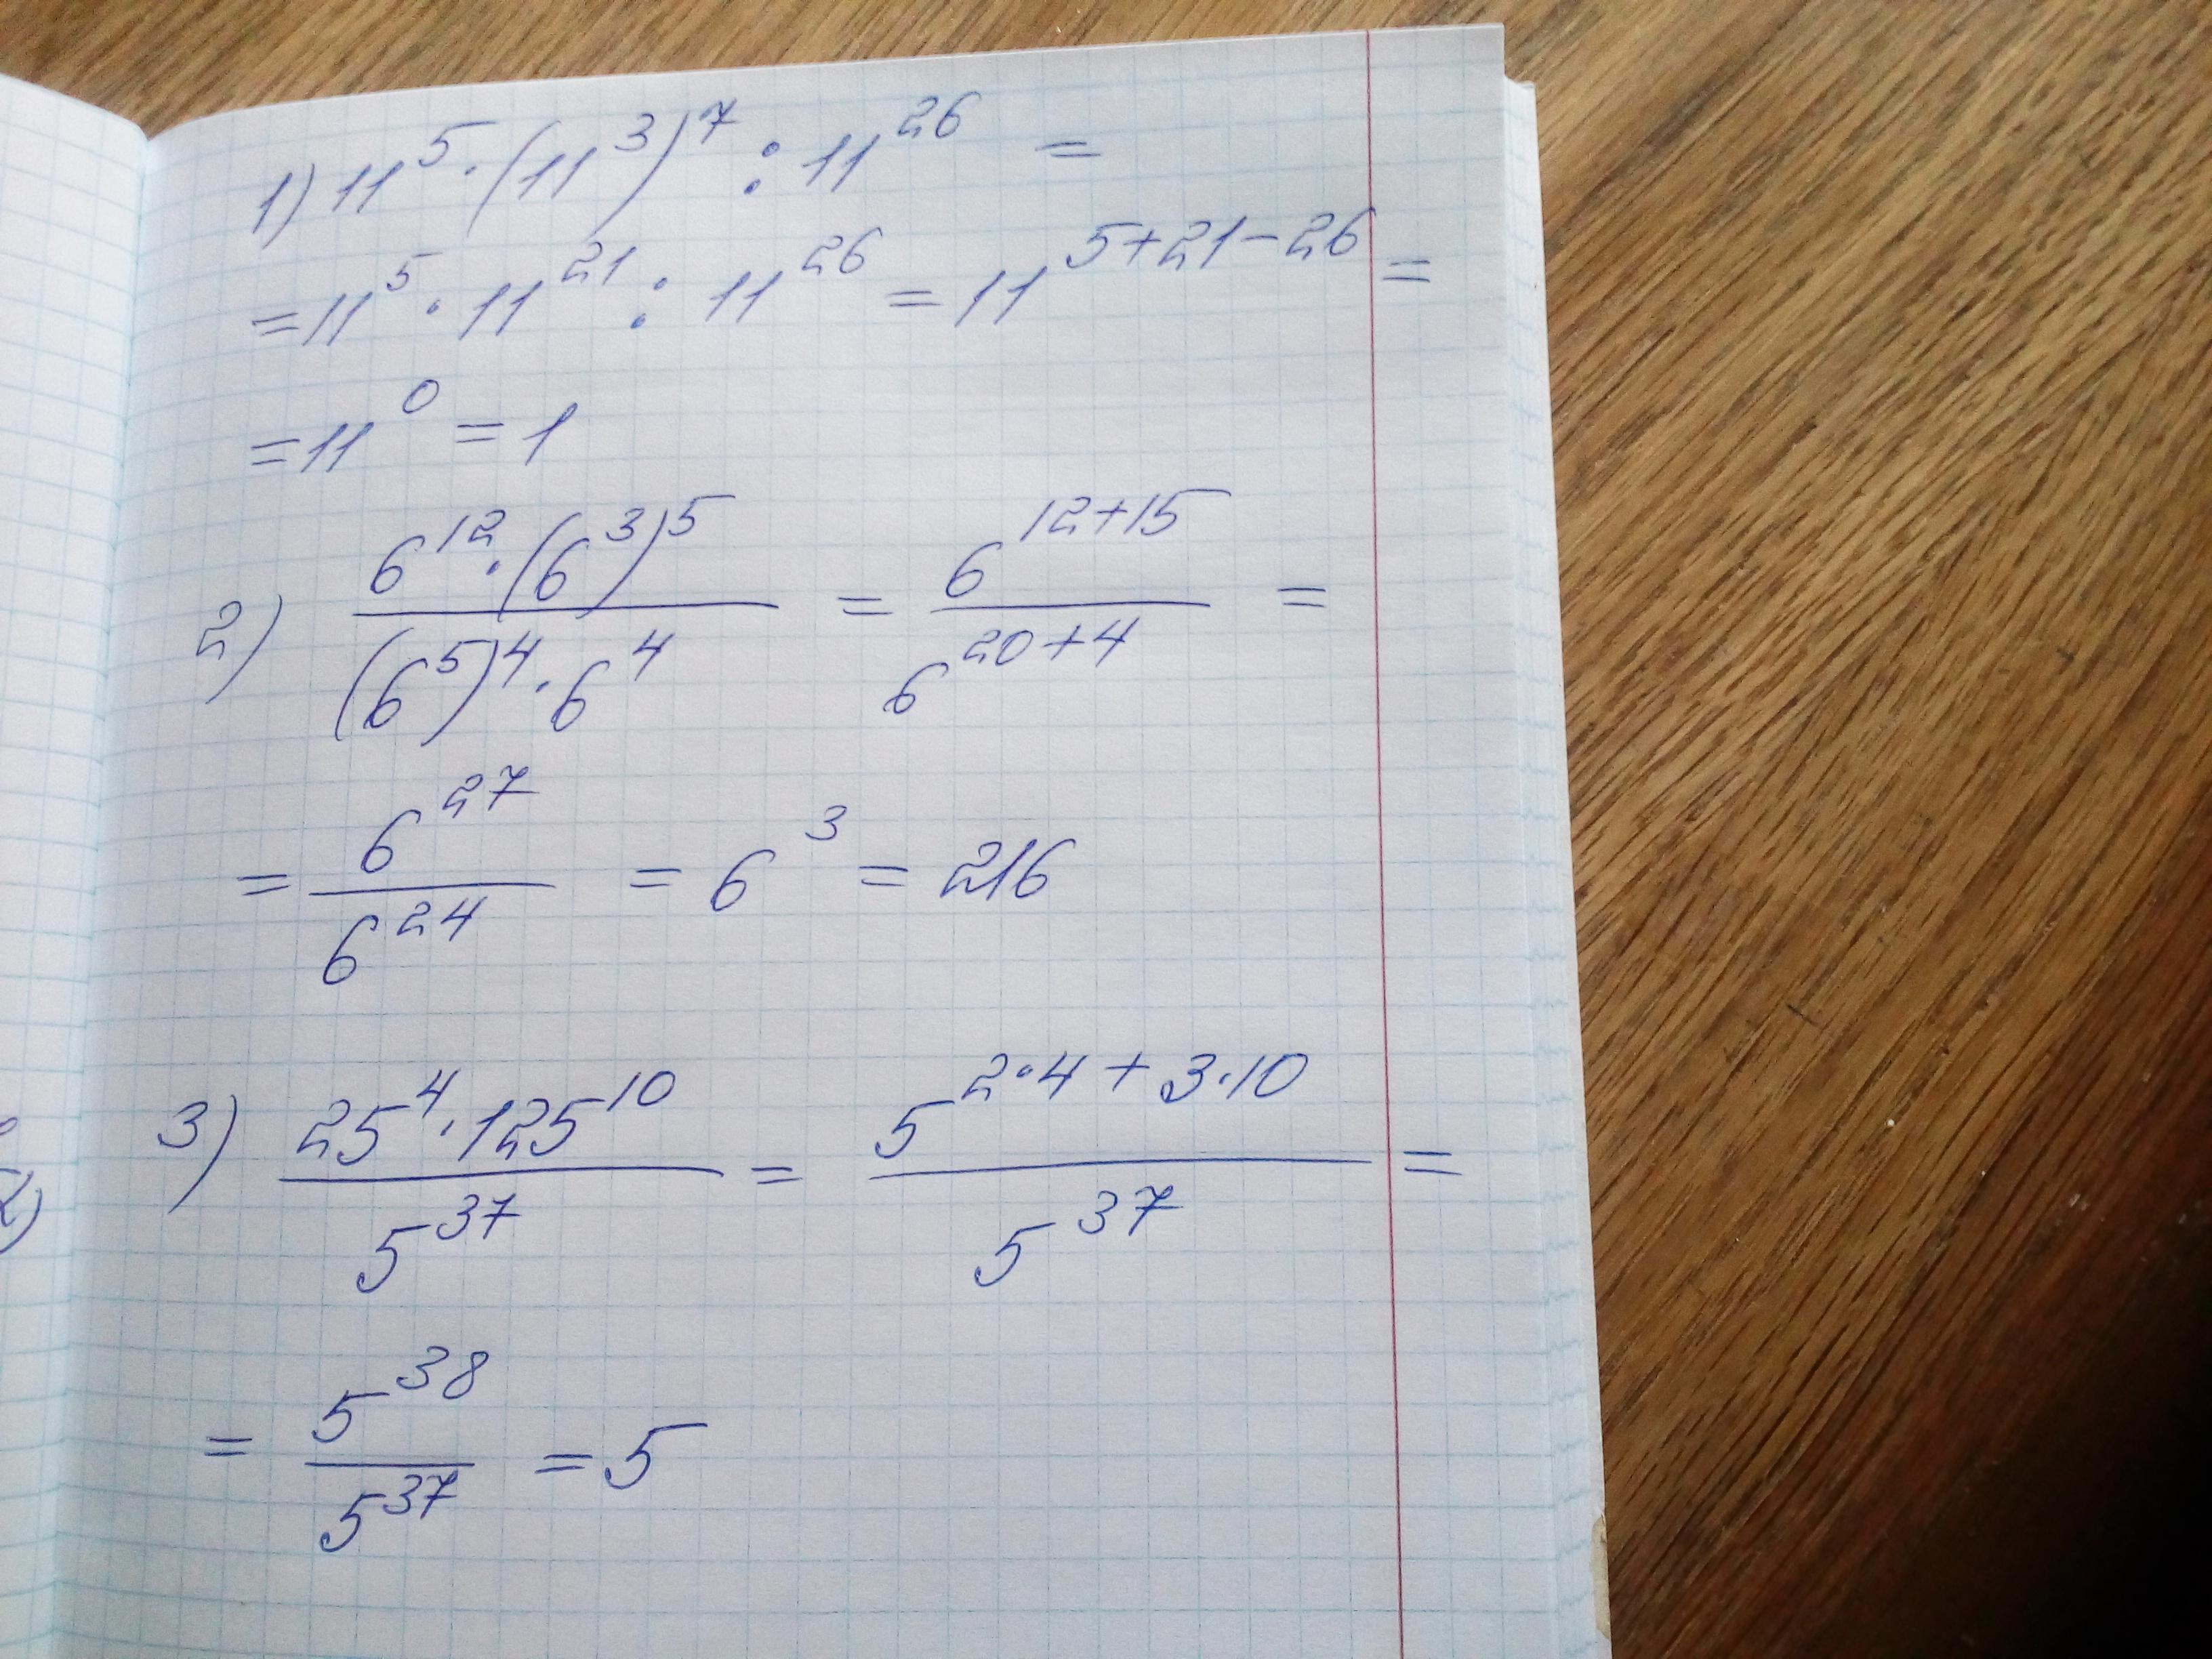 1) 11⁵ · (11³)⁷ : 11²⁶ =
= 11⁵ · 11²¹ : 11²⁶ = 11⁵⁺²¹⁻²⁶ =
= 11⁰ = 1
2) (6¹² · (6³)⁵) / ((6⁵)⁴ · 6⁴) = 6¹²⁺¹⁵ / 6²⁰⁺⁴ =
= 6²⁷ / 6²⁴ = 6³ = 216
3) (25⁴ · 125¹⁰) / 5³⁷ = 5^(2·4 + 3·10) / 5³⁷ =
= 5³⁸ / 5³⁷ = 5